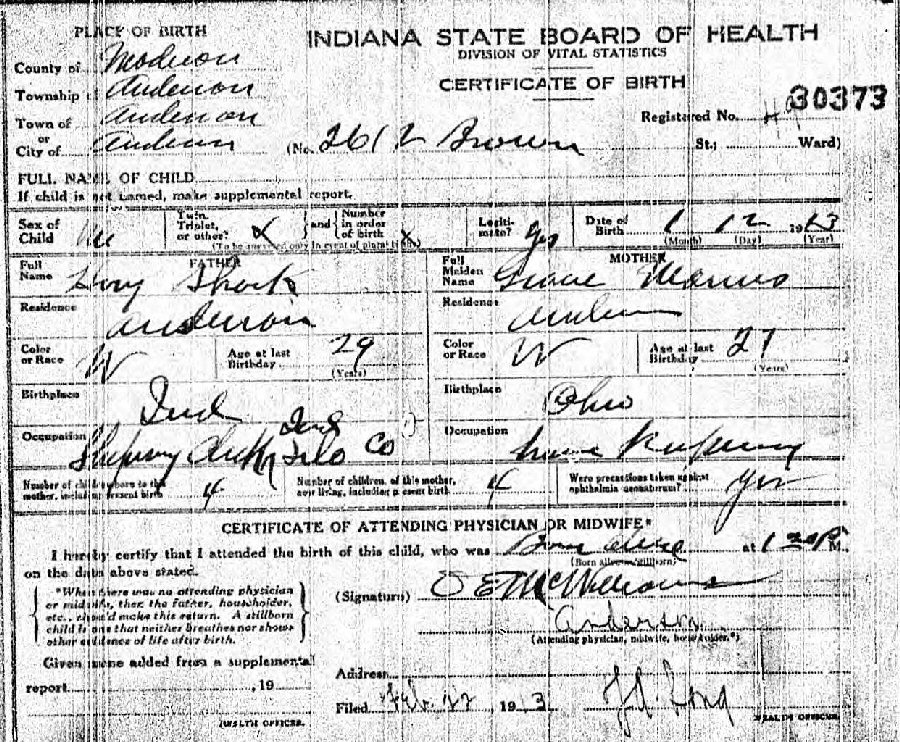 PLACE OF BIRTH
INDIANA STATE BOARD OF HEALTH
DIVISION OF VITAL STATISTICS
CERTIFICATE OF BIRTH
County of Madison
Township of Anderson
Town of Anderson
or
City of Anderson
Registered No. 30373
(No. 2612 Brown St.; Ward)
FULL NAME OF CHILD
If child is not named, make supplemental report.
Sex of Child M Twin, Triplet, or other? X and Number in order of birth X Legiti-mate? Yes Date of Birth 1 12 1913
(To be answered only in event of plural births) (Month) (Day) (Year)
FATHER MOTHER
Full Name Full Maiden Name Grace
Residence Anderson Residence Anderson
Color or Race W Age at last Birthday 29 (Years) Color or Race W Age at last Birthday 27 (Years)
Birthplace Ind Birthplace Ohio
Occupation Shipping Clerk Ind Co Occupation House Keeping
Number of children born to this mother, including present birth 4 Number of children, of this mother, now living, including present birth 4 Were precautions taken against ophthalmia neonatorum? Yes
CERTIFICATE OF ATTENDING PHYSICIAN OR MIDWIFE*
I hereby certify that I attended the birth of this child, who was Born alive at 1 20 P M.
(Born alive or stillborn)
on the date above stated.
*When there was no attending physician
or midwife, then the father, householder,
etc., should make this return. A stillborn
child is one that neither breathes nor shows
other evidence of life after birth.
(Signature) O E McWilliams
Anderson
(Attending physician, midwife, householder.*)
Given name added from a supplemental
report , 19
HEALTH OFFICER.
Address
Filed Feb. 22 1913
HEALTH OFFICER